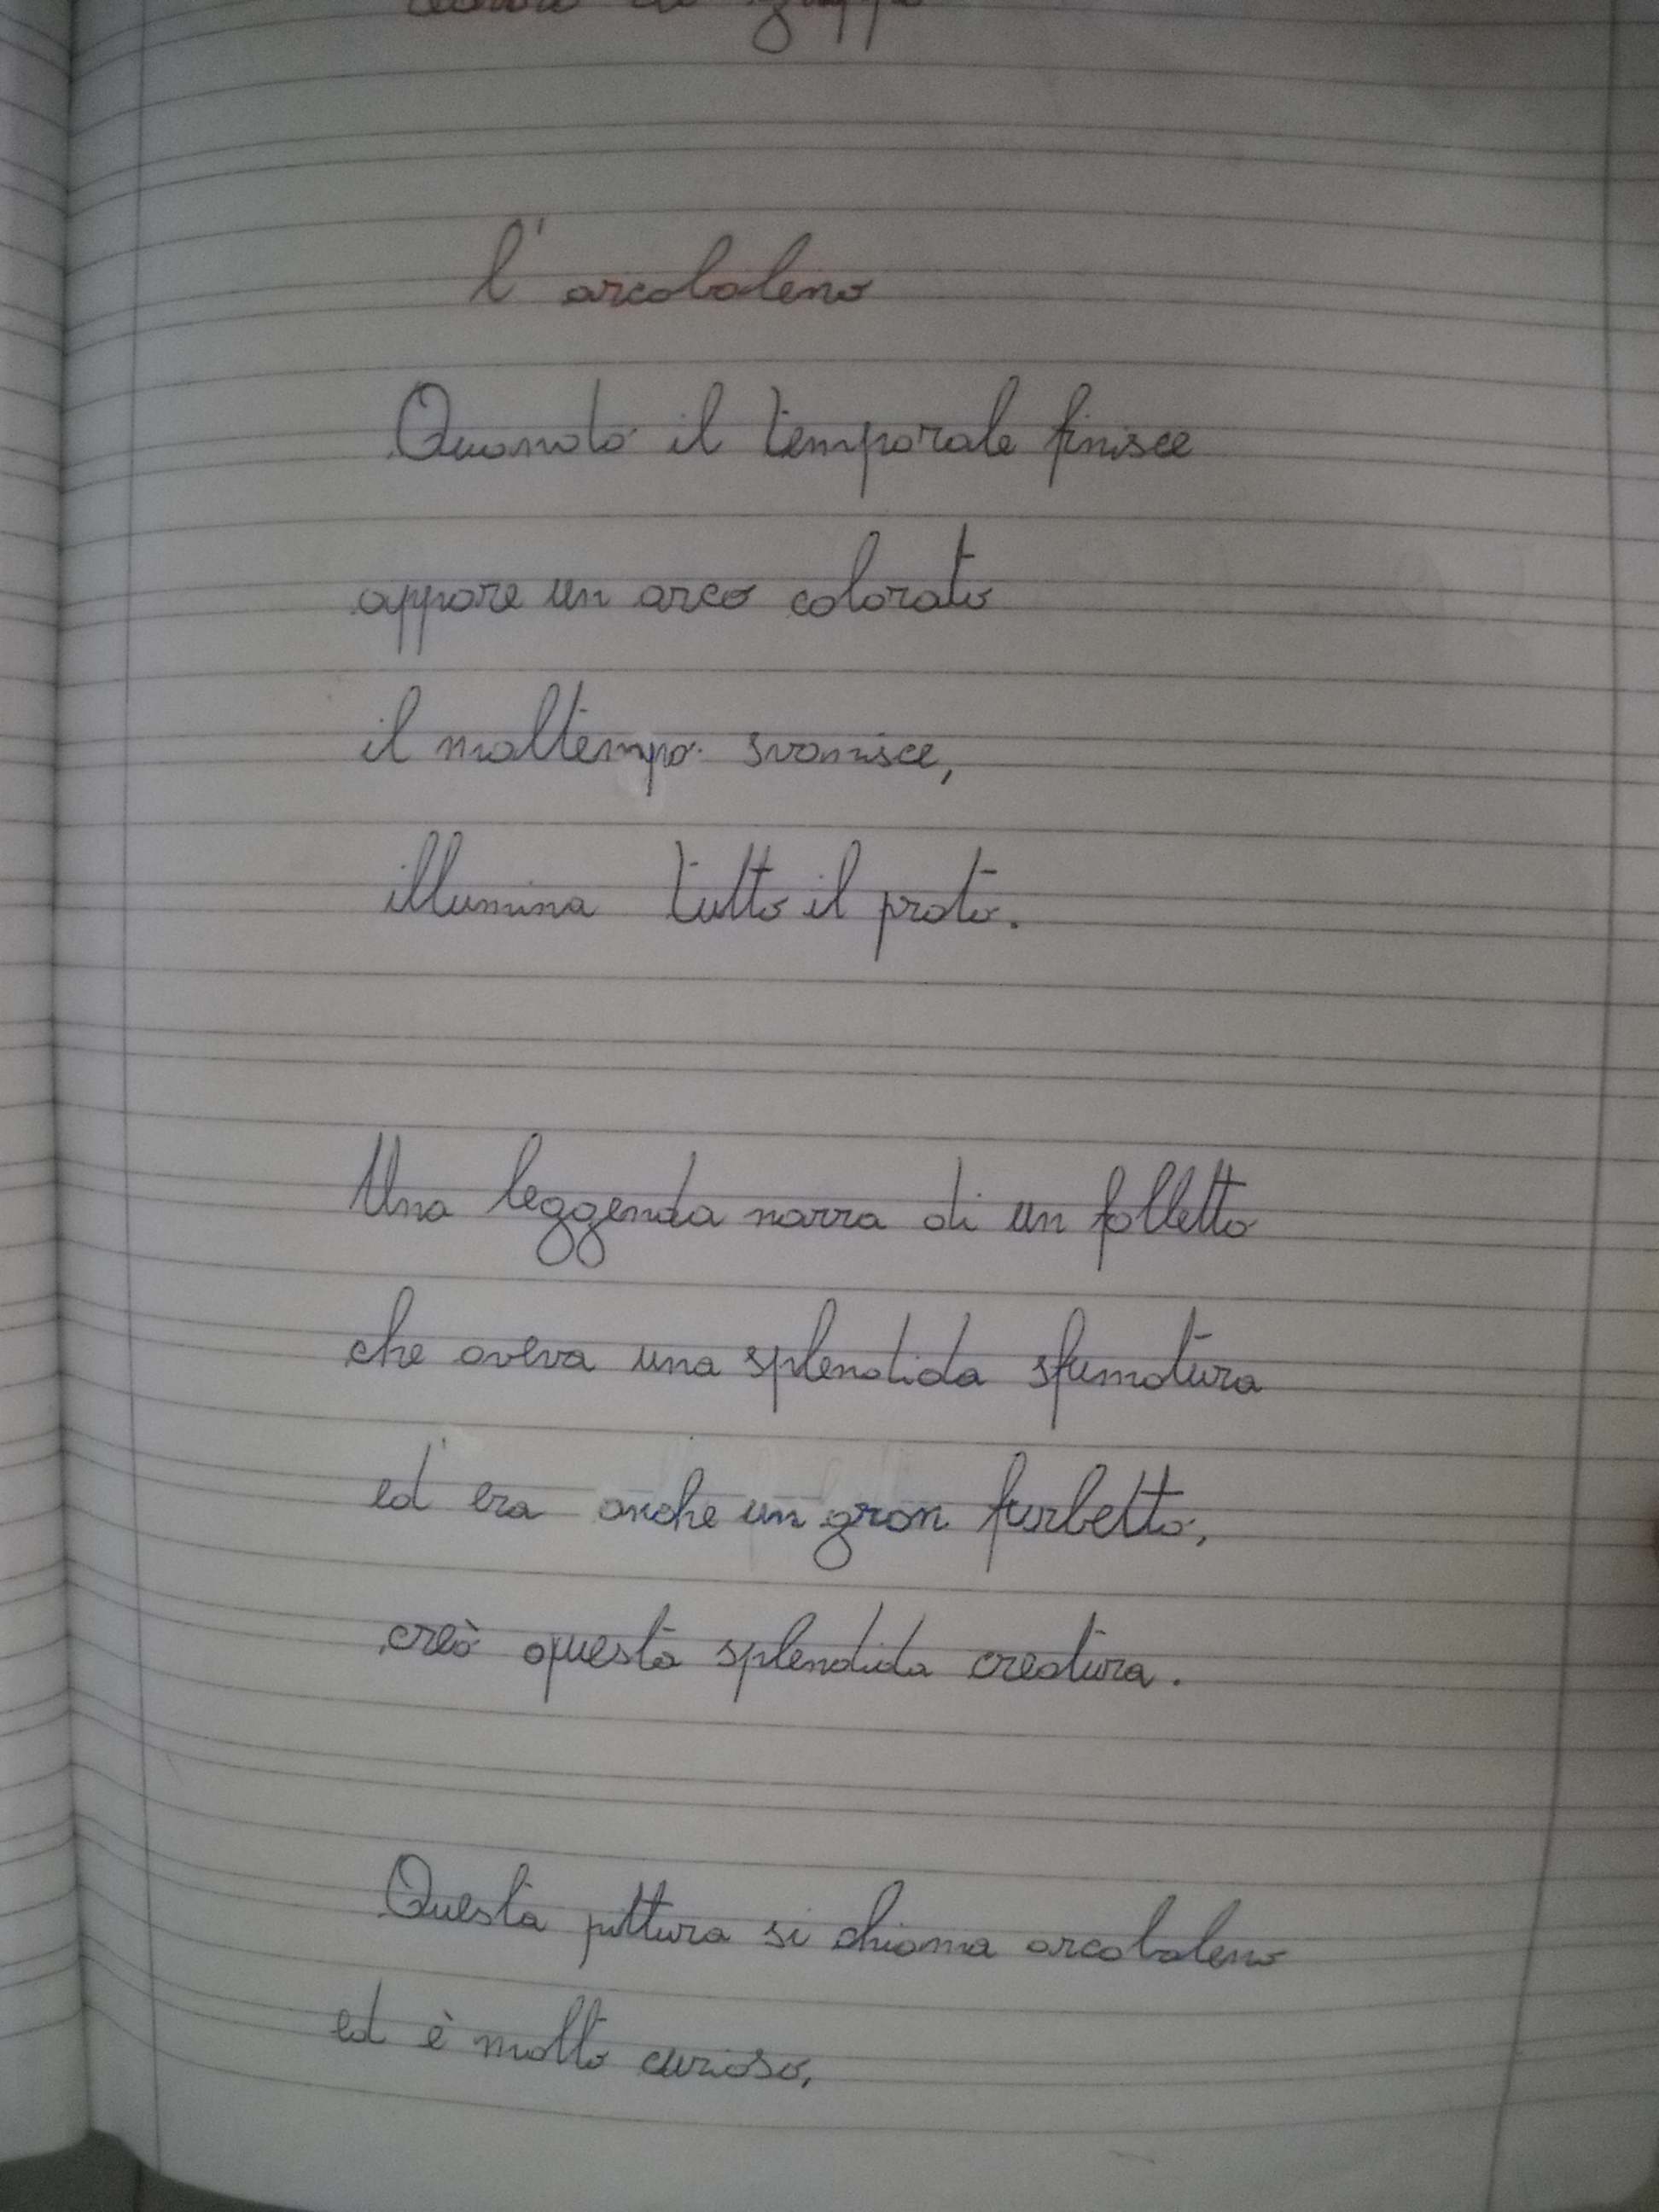 l'arcobaleno
Quando il temporale finisce
appare un arco colorato
il maltempo svanisce,
illumina tutto il prato.
Una leggenda narra di un folletto
che aveva una splendida sfumatura
ed'era anche un gran furbetto,
creò questa splendida creatura.
Questa pittura si chiama arcobaleno
ed è molto curioso,